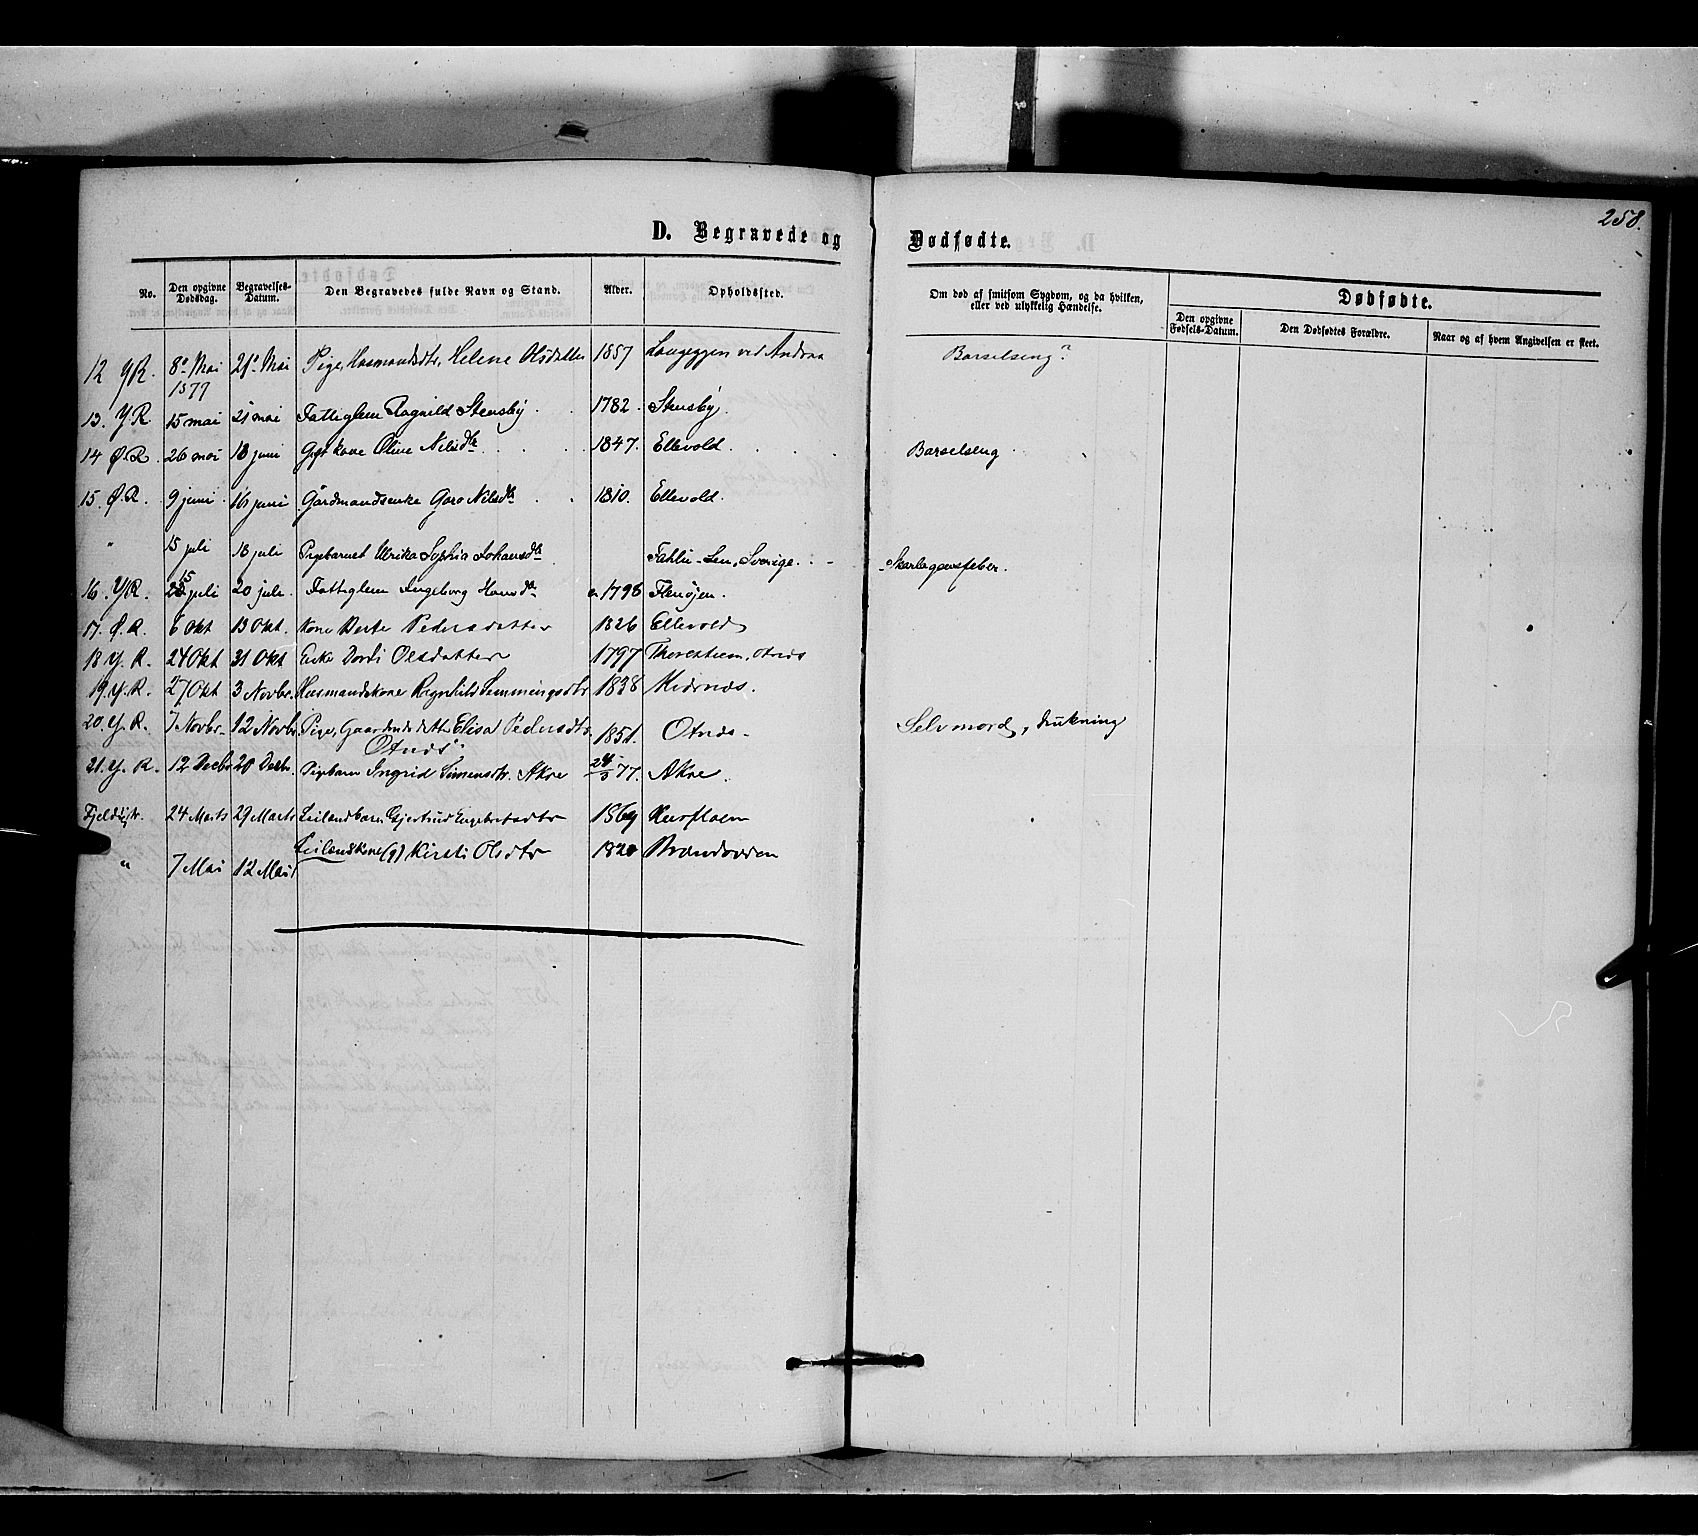 258.
D. Begravede og Dødfødte.
No. Den opgivne Dødsdag. Begravelses-Datum. Den Begravedes fulde Navn og Stand. Alder. Opholdssted. Om død af smitsom Sygdom, og da hvilken, eller ved ulykkelig Hændelse. Dødfødte.
Den opgivne Fødsels-Datum. Den Dødfødtes Forældre. Naar og af hvem Angivelsen er skeet.
12 Y R. 8de Mai 21de Mai Pige, Husmandsdtr, Helene Olsdatter 1857 Langeggen ved Andraa Barselseng?
1877
13. Y R 15 mai 21 mai Fattiglem Ragnild Stensby 1782. Stensby.
14 Ø. R. 26 mai 18 juni Gift kone Oline Nilsdtr 1847. Ellevold. Barselseng
15. Ø. R. 9 juni 16 juni Gårdmandsenke Goro Nilsdtr 1810. Ellevold.
" 15 juli 18 juli Pigebarnet Ulrika Sophia Johansdtr Fahlu-Len, Sverige. Skarlagensfeber.
16. Y R. 15 juli 20 juli. Fattiglem Ingeborg Hansdtr 1798 Flenøjen.
17. Ø. R. 6 Okt 13 Okt. Kone Berte Pedersdatter 1826 Ellevold
18 Y. R. 24 Okt 31 Okt Enke Dordi Olsdatter 1797 Otnes
19. Y. R. 27 Okt 3 Novbr. Husmandskone Ragnhild Simmingsdtr 1838 Midtnes.
20. Y. R. 7 Novbr. 12 Novbr Pige, Elisa Pedersdtr. 1851. Otnes. Selvmord, drukning
Otnes
21. Y. R. 12 Decbr 20 Decbr. Pigebarn Ingrid Simensdtr. Akre 24/3 77. Akre.
Fjeldøstr. 24 Marts 29 Marts Leilendbarn Gjertrud Engebretsdtr 1869
" 7 Mai 12 Mai Leilendskone (g) Kirsti Olsdtr 1820